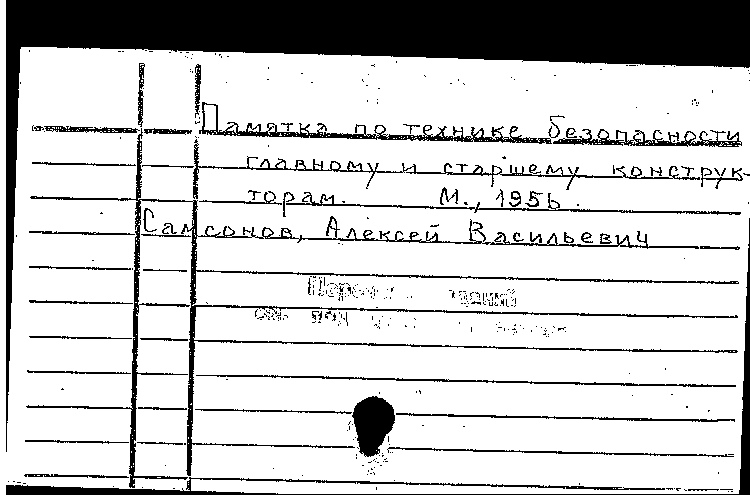 Памятка по технике безопасности
главному и старшему конструк-
торам. М., 1956.
Самсонов, Алексей Васильевич